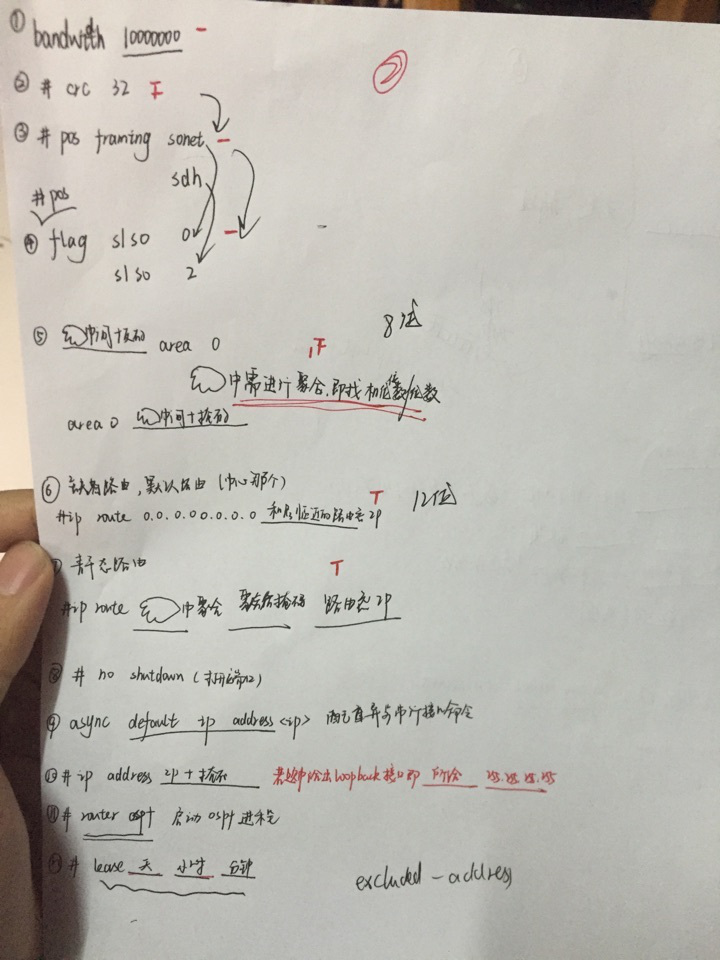 ②
① bandwidth 10000000 -
② # crc 32 T
③ # pos framing sonet -
sdh
# pos
④ flag s1s0 0 -
s1s0 2
8位
⑤ 云中间+掩码 area 0 T
云中需进行聚合,即找相同位数
area 0 云中间+掩码
⑥ 缺省路由,默认路由(中心那个) T 12位
#ip route 0.0.0.0 0.0.0.0 和房临近的路由器IP
⑦ 静态路由 T
#ip route 云中聚合 聚合后掩码 路由器IP
⑧ # no shutdown (打开端口)
⑨ async default ip address <ip> 面已直异步串行接口命令
⑩ # ip address IP+掩码 若题中给出loopback接口即 所给 255.255.255.255
⑪ # router ospf 启动 ospf 进程
⑫ # lease 天 小时 分钟
excluded-address